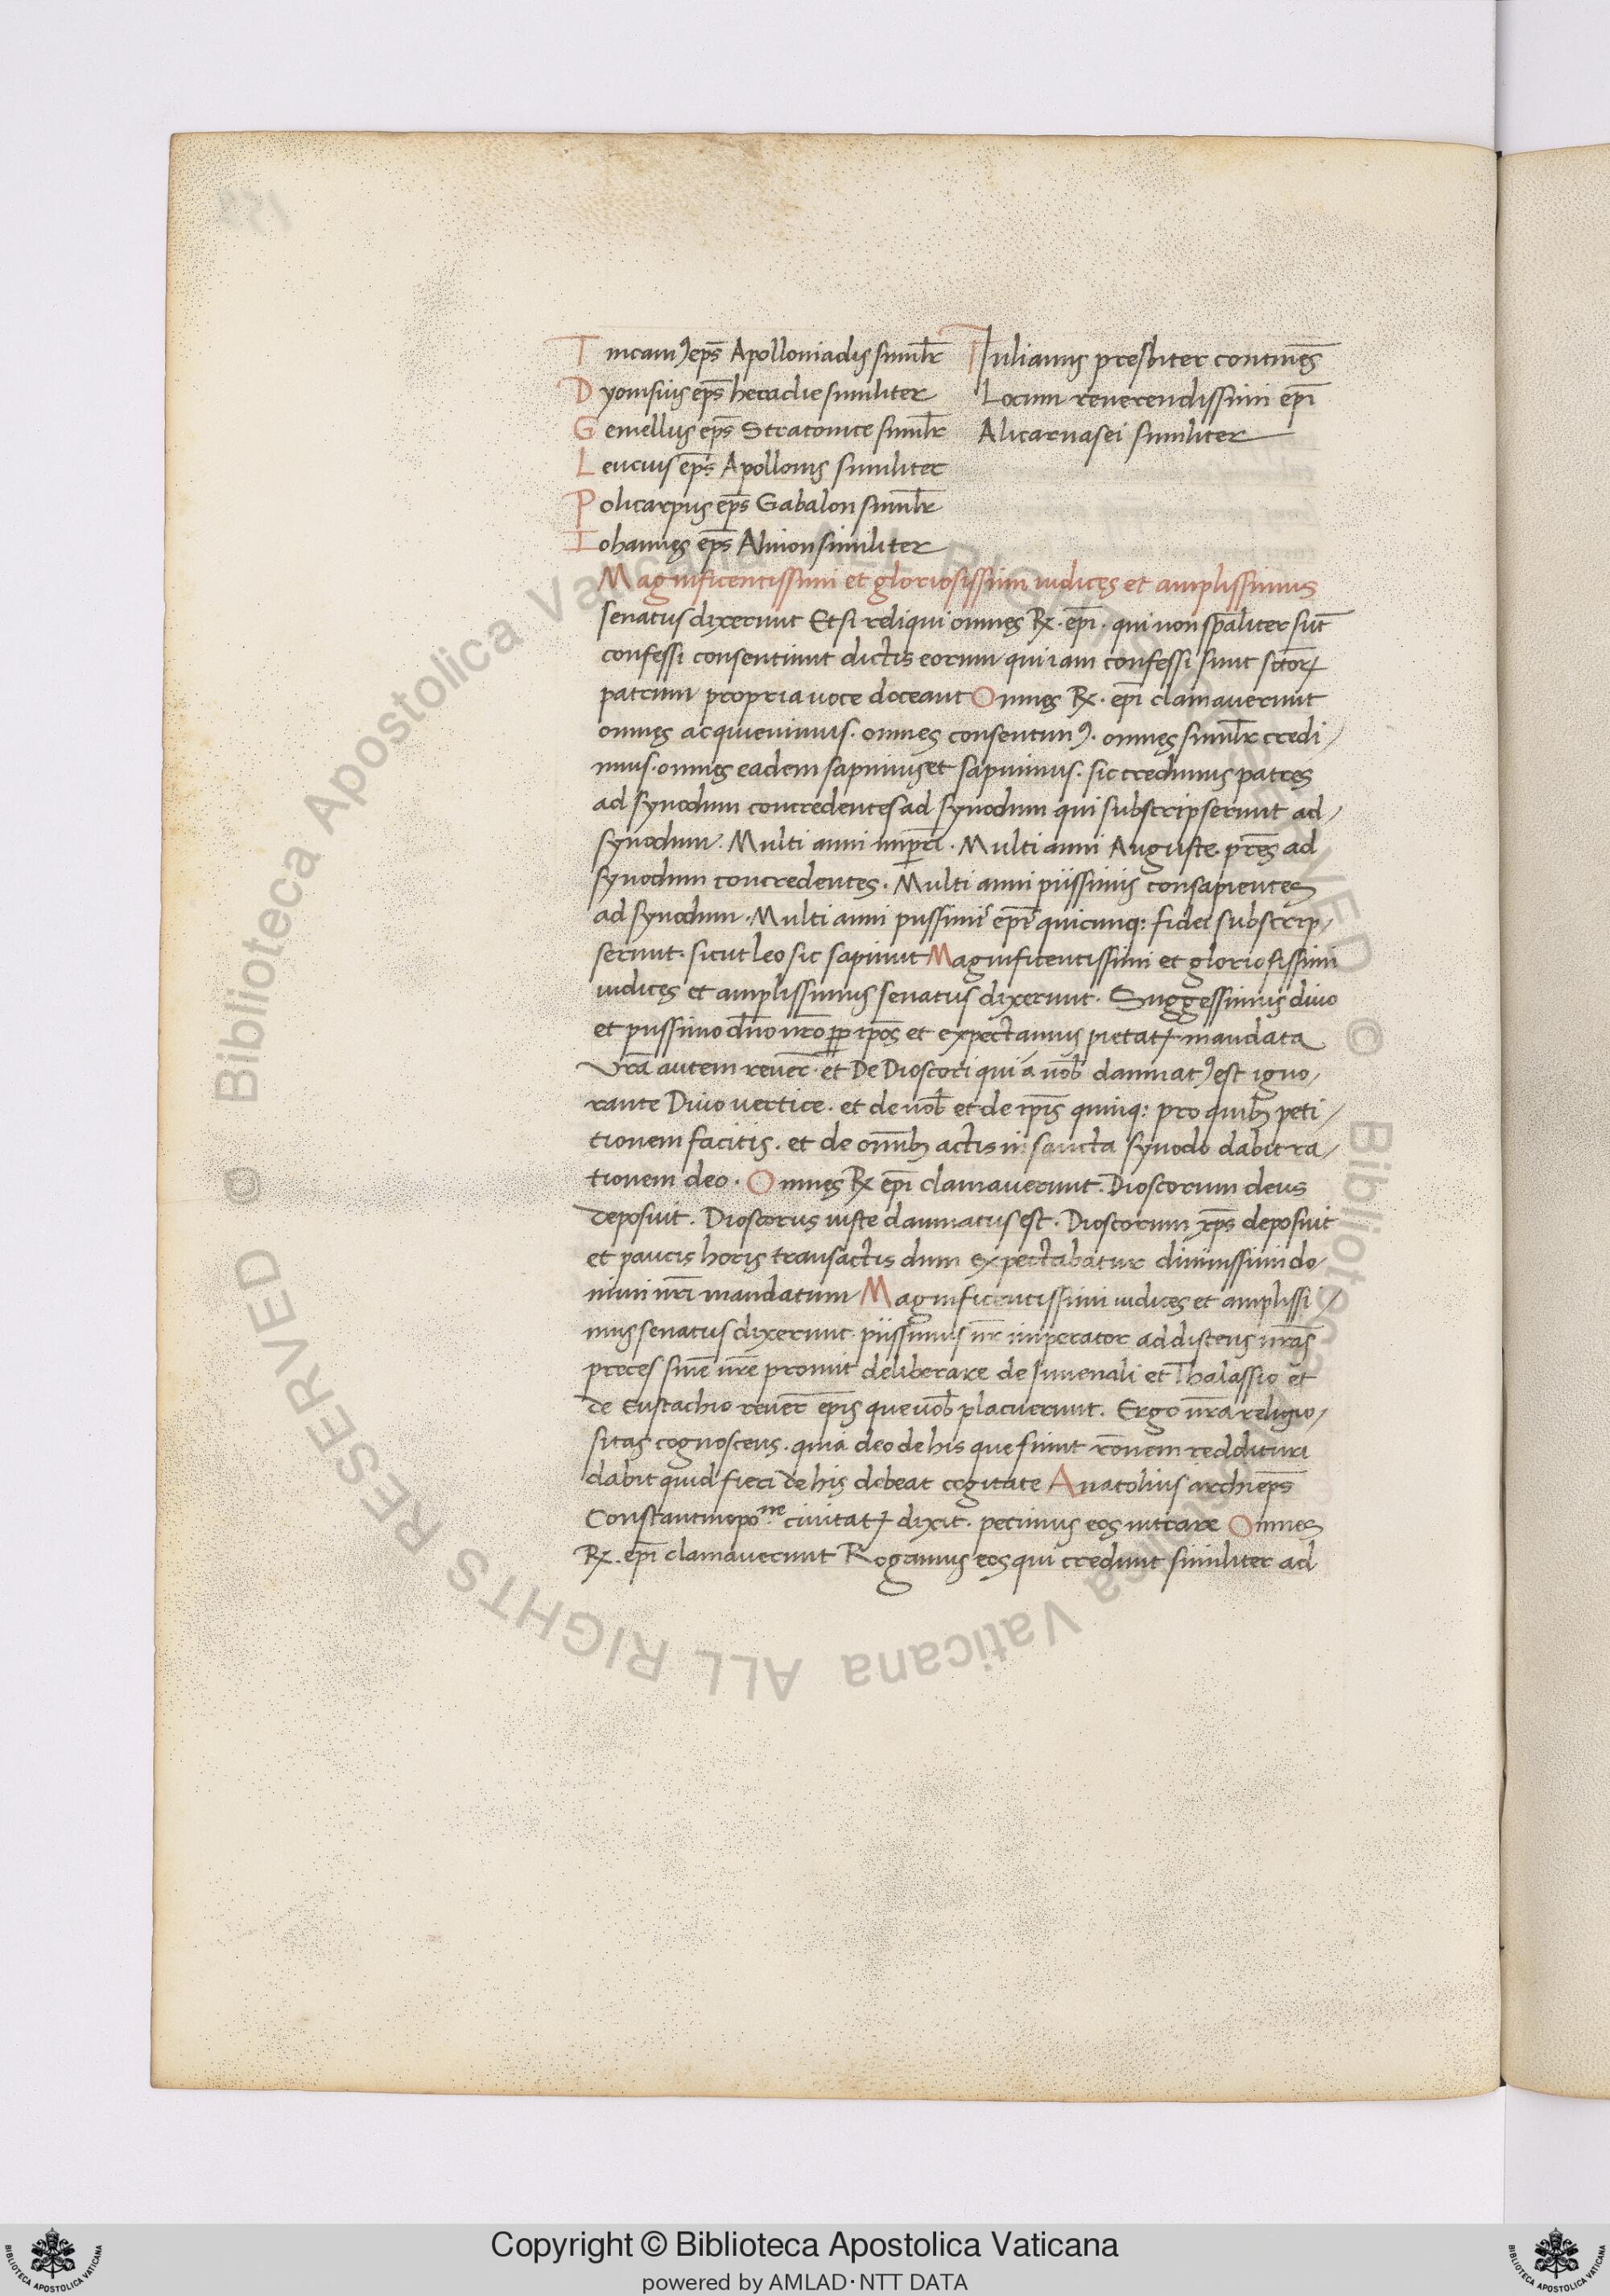 Tincamꝰ ep̄s Apolloniadis simil̄r
Dyonisius ep̄s heraclie similiter
Gemellus ep̄s Stratonice simil̄r
Leucius ep̄s Apollonis similiter
Policarpus ep̄s Gabalon simil̄r
Iohannes ep̄s Alinon similiter
Iulianus presbiter contines̄
Locum reuerendissimi ep̄i
Alicarnasei similiter
Magnificentissimi et gloriosissimi iudices et amplissimus
senatus dixerunt Et si reliqui omnes R̷. ep̄i. qui non sp̄aliter sūt
confessi consentiunt dictis eorum qui iam confessi sunt sc̄toꝝ
patrum propria uoce doceant Omnes R̷. ep̄i clamauerunt
omnes acquieuimus. omnes consentimꝰ. omnes simil̄r credi/
mus. omnes eadem sapimus et sapuimus. sic credimus patres
ad synodum concredentes ad synodum qui subscripserunt ad/
synodum. Multi anni imp̄ri. Multi anni Auguste. pr̄es ad
synodum concredentes. Multi anni piissimis consapientes
ad synodum. Multi anni piissimi ep̄i quicunq: fidei subscrip/
serunt. sicut leo sic sapiunt Magnificentissimi et gloriosissimi
iudices et amplissimus senatus dixerunt. Suggessimus diuo
et piissimo dn̄o nr̄o et expectamus pietatꝭ mandata
Vr̄a autem reuer̄. et De Dioscori qui a uob̄ damnatꝰ est igno/
rante Diuo uertice. et de uob̄ et de ip̄is quinq: pro quibꝫ peti/
tionem facitis. et de omībꝫ actis in sancta synodo dabit ra/
tionem deo. Omnes R̷ ep̄i clamauerunt. Dioscorum deus
deposuit. Dioscorus iuste damnatus est. Dioscorum xp̄s deposuit
et paucis horis transactis dum expectabatur diuinissimi do/
mini nr̄i mandatum Magnificentissimi iudices et amplissi/
mus senatus dixerunt. piissimus nr̄ imperator addiscens ur̄as
preces ur̄e deliberare de Iuuenali et Thalassio et
de Eustachio reuer̄ ep̄is que uob̄ placuerunt. Ergo ur̄a religio/
sitas cognoscens. quia deo de his que fiunt rōnem reddituri
dabit quid fieri de his debeat cogitate Anatolius archiep̄s
Constantinopo.ne ciuitatꝭ dixit. petimus eos intrare Omnes
R̷. ep̄i clamauerunt Rogamus eos qui credunt similiter ad
© Biblioteca Apostolica Vaticana ALL RIGHTS RESERVED
Copyright © Biblioteca Apostolica Vaticana
powered by AMLAD·NTT DATA